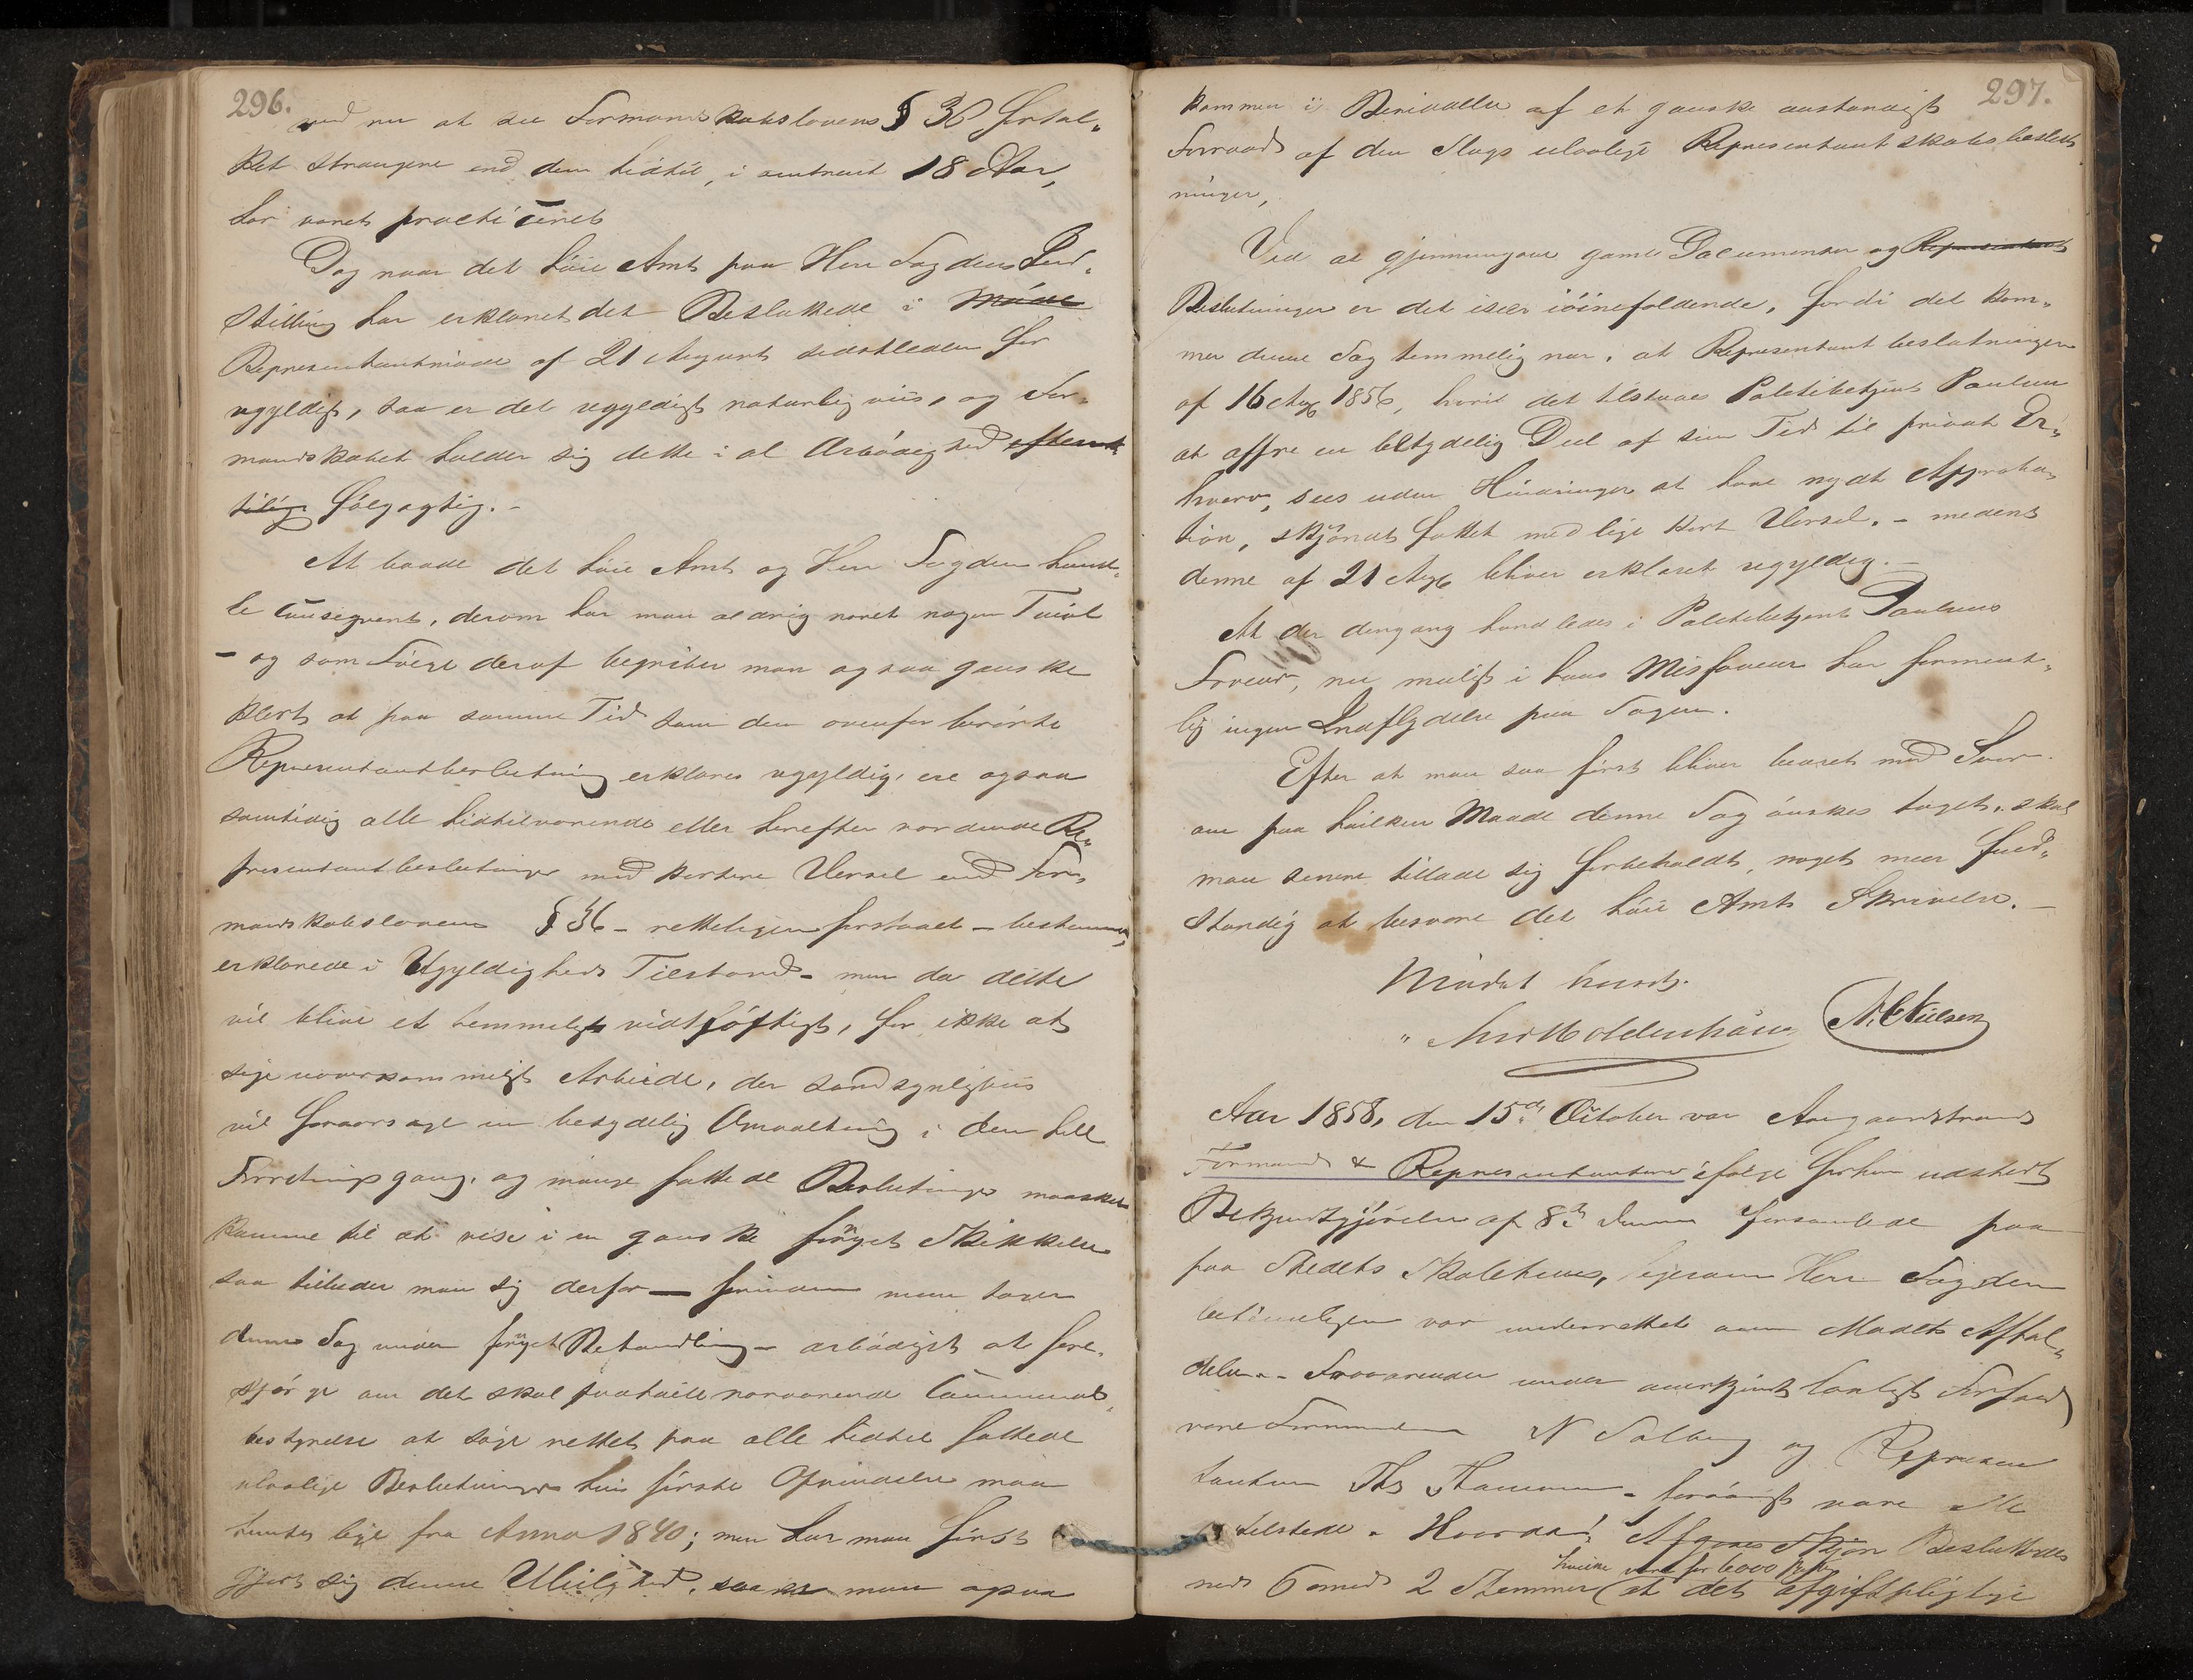 296.
ved nu at see Formandskabslovens § 36 fortol„
ket strængere end den hidtil, i omtrent 18 Aar,
har været practiceret
Dog naar det höie Amt paa Herr Fogdens Ind„
stilling har erklæret det Besluttede i Möde
Representantmöde af 21 August sidstleden for
ugyldigt, saa er det ugyldigt naturligviis, og For„
mandskabet holder sig dette i al Ærbödighed
fölgagtig. -
At baade det höie Amt og Herr Fogden handl„
le consequent, derom har man aldrig næret nogen Tvivl
- og som Fölge deraf begriber man ogsaa ganske
klart at paa samme Tid som den ovenfor berörte
Representantbeslutning erklæres ugyldig, ere ogsaa
samtidig alle hidtilværende eller herefter vordende Re„
presentantbeslutninger med kortere Varsel end For„
mandskabsloven § 36 - retteligen forstaaet - bestemmer,
erklærede i Ugyldigheds Tilstand - men da dette
vil blive et temmeligt vidtlöftigt, for ikke at
sige uoverkommeligt Arbeide, der sandsynligviis
vil foraarsage en betydelig Omvæltning i den hele
Forretningsgang, og mange fattede Beslutninger maaskee
komme til at vise i en ganske fornyet Skikkelse
saa tillader man sig derfor - forinden man tager
denne Sag under fornyet Behandling - ærbödigst at fore„
spörge om det skal paahvile nærværende Communal„
bestyrelse at söge rettet paa alle hidtil fattede
ulovlige Beslutninger hvis förste Oprindelse maa
hentes lige fra Anno 1840; men har man först
gjort sig denne Uleilighed, saa man ogsaa
297.
kommen i Besiddelse af et ganske anstændigt
Forraad af den Slags ulovlige Representantskabsbeslut
ninger,
Ved at gjennemgaae gamle Documenter og Representant
Beslutninger er det især iöinefaldende, fordi det kom„
mer denne Sag temmelig nær, at Representantbeslutningen
af 16 Aug 1856, hvori det tilstaaes Politibetjent Paulsen
at offre en betydelig Deel af sin Tid til privat Er„
hverv, sees uden Hindringer at have nydt Approba„
tion, skjöndt fattet med lige kort Varsel. - medens
denne af 21 Aug bliver erklæret ugyldig. -
At der dengang handledes i Politibetjent Paulsens
Faveur, nu muligt i hans Misfaveur har forment„
lig ingen Indflydelse paa Sagen.
Efter at man saa först bliver beæret med Svar
om paa hvilken Maade denne Sag önskes taget, skal
man senere tillade sig forbeholdt, noget meer fuld„
stændig at besvare det höie Amts Skrivelse. -
Mödet hævet.
Moldenhauer N. Nielsen
Aar 1858, den 15de October var Aasgaardstrands
Formænd & Representantere ifölge forhen udstedt
Bekjendtgjörelse af 8de denne forsamlede paa
paa Stedets Skolehuus, ligesom Herr Fogden
betimeligen var underrettet om Mödets Afhol„
delse. - Fraværende under anerkjendt lovligt Forfald
vare Formanden N Solberg og Represen
tanten Ths Hansen - forövrigt vare alle
tilstede. Hvorda! Afgaves Skjön Besluttedes
hvilke vare for 6000
med 6 mod 2 Stemmer (at det afgiftspligtige